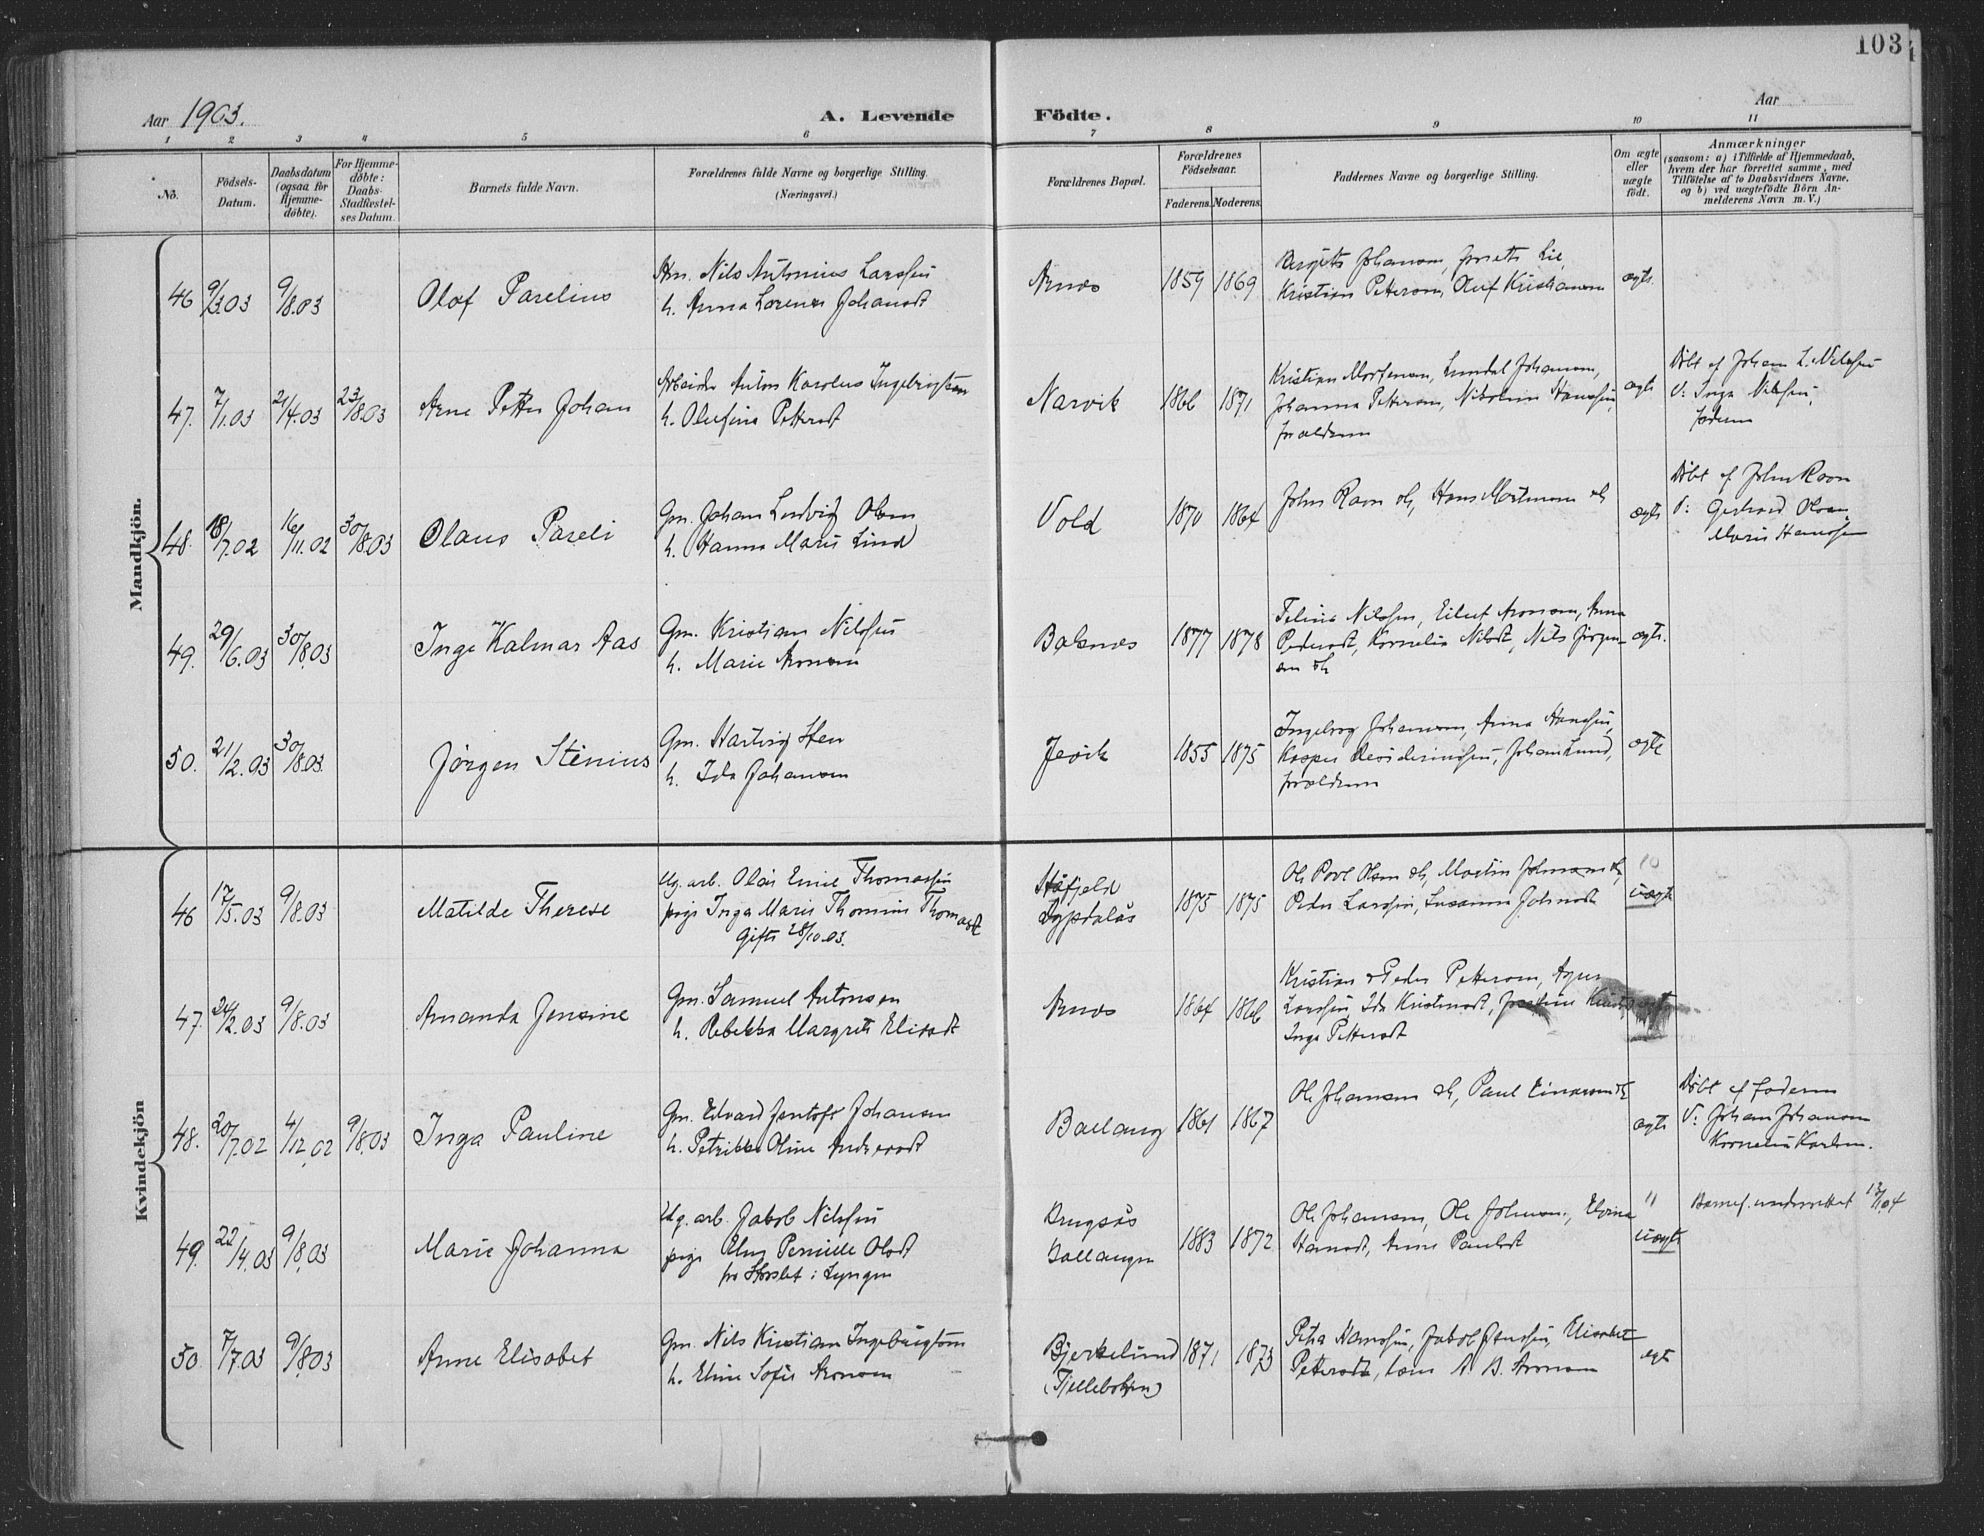 103
Aar 1903.
A. Levende Födte.
Aar
1 2 3 4 5 6 7 8 9 10 11
No.
Födsels-Datum.
Daabsdatum (ogsaa for Hjemme-döbte).
For Hjemme-döbte: Daabs-Stadfæstel-ses Datum.
Barnets fulde Navn.
Forældrenes fulde Navne og borgerlige Stilling.
(Næringsvei.)
Forældrenes Bopæl.
Forældrenes Födselsaar.
Faderens. Moderens.
Faddernes Navne og borgerlige Stilling.
Om ægte eller uægte født.
Anmærkninger
(saasom: a) i Tilfælde af Hjemmedaab,
hvem der har forrettet samme, med
Tilföielse af to Daabsvidners Navne,
og b) ved uægtefödte Börn An-
melderens Navn m. V.)
Mandkjön.
46 9/3.03 9/8.03 Olaf Parelius
Nils Antonius Larssen
h. Anna Lorense Johansdt
1859 1869
Johansen,
Kristian Pettersen, Oluf Kristiansen
ægte
47. 7/1.03 21/4.03 23/8.03 Arne Petter Johan
Arbeider Anton Karolus Ingebrigtsen
h. Olufine Pettersdt
Narvik 1866 1871
Kristian Mortensen, Lundal Johansen,
Johanna Pettersen, Nikoline Hanssen,
forældrene
ægte
Døbt af Johan L. Nilssen
V: Inga Nilssen,
faderen
48. 18/7.02 16/11.02 30/8.03 Olaus Pareli
Gm. Johan Ludvig Olsen
h. Hanna Marie Lind
Vold 1870 1864
John Ravn oh, Hans Mortensen oh
ægte
Døbt af John Ravn
V: Gerhard Olsen,
Marie Hanssen
49. 29/6.03 30/8.03 Inge Kalmar Aas
Gm. Kristian Nilssen
h. Marie Aronsen
Balsnes 1877 1878
Nilssen, Eilert Aronsen, Anna
Pedersdt, Kornelia Nilsdt, Nils Jørgen-
sen oh
ægte.
50. 21/2.03 30/8.03. Jørgen Stenius
Gm. Hartvig Sten
h. Ida Johansen
1855 1875
Ingeborg Johansen, Anna Hanssen,
Kasper Johan Lund,
forældrene
ægte
Kvindekjön
46 17/5.03 9/8.03 Matilde Therese
Ug. arb. Olai Emil Thomassen
pige Inga Marie Thomine Thomasdt
Gifte 28/10.03.
Dypdalås
1875 1875
Ole Povl Olsen oh, Martin Johansen oh,
Peder Larssen, Susanna Johnsdt
uægte
47. 24/2.03 9/8.03 Amanda Jensine
Gm. Samuel Antonsen
h. Rebekka Margrete Elisadt
1864 1866
Kristian & Peder Pettersen,
Larssen, Ida Kristensdt,
Inga Pettersdt
48. 20/7.02 4/12.02 9/8.03 Inga Pauline
Gm. Edvard Jentoft Johansen
h. Petrikke Oline Andersdt
Ballang 1861 1867
Ole Johansen oh, Paul Einarsen oh
ægte
Døbt af faderen
V: Johan Johansen
Kornelia Karlsen.
49. 22/4.03 9/8.03 Marie Johanna
Ug. arb. Jakob Nilssen
pige Elen Pernille Olsdt
fra Storslet i Lyngen
Ballangen
1883 1872
Ole Johansen, Ole Johnsen,
Hansdt, Anna Paulsdt
" uægte
Barnef. underrettet 12/1.04
50. 7/7.03 9/8.03 Anne Elisabet
Gm. Nils Kristian Ingebrigtsen
h. Eline Sofie Aronsen
Bjerkelund
1871 1873
Petra Hanssen, Jakob Jenssen, Elisabet
Pettersdt, A. B. Aronsen
ægte